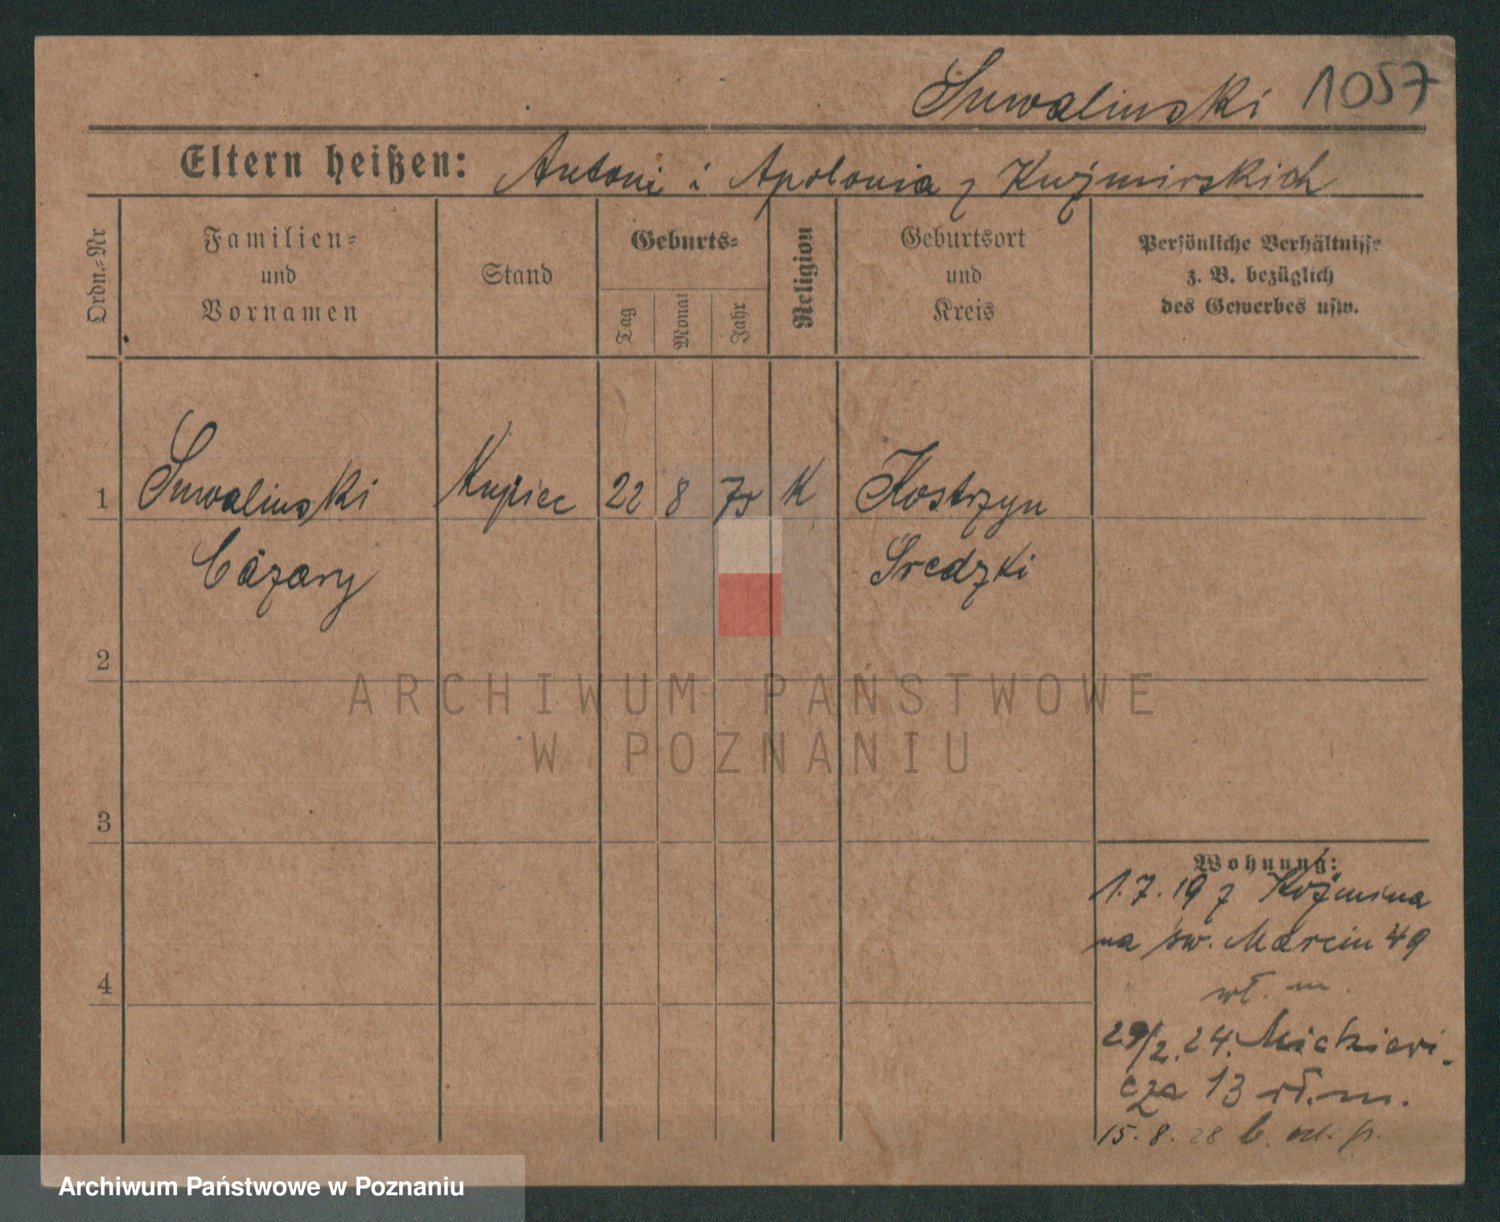 Suwalinski 1057
Eltern heißen: Antoni i Apolonia z Kuźmirskich
Ordn.-Nr
Familien-
und
Vornamen
Stand
Geburts-
Tag
Monat
Jahr
Religion
Geburtsort
und
Kreis
Persönliche Verhältnisse
z. B. bezüglich
des Gewerbes usw.
1 Suwalinski Kupiec 22 8 75 K Kostrzyn
Cäzary Sredzki
2
3
4
Wohnung:
1.7.19 z Koźmina
na św. Marcin 49
wł. m.
29/2.24. Mickiewi-
cza 13 wł. m.
15.8.28 b.
ARCHIWUM PAŃSTWOWE
W POZNANIU
Archiwum Państwowe w Poznaniu